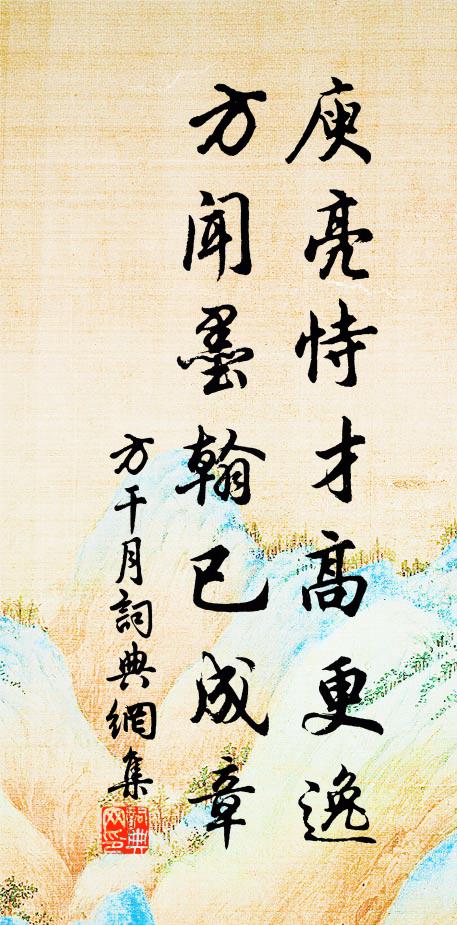 庾亮恃才高更逸
方闻墨翰已成章
方干月詞典網集
詞典
网印